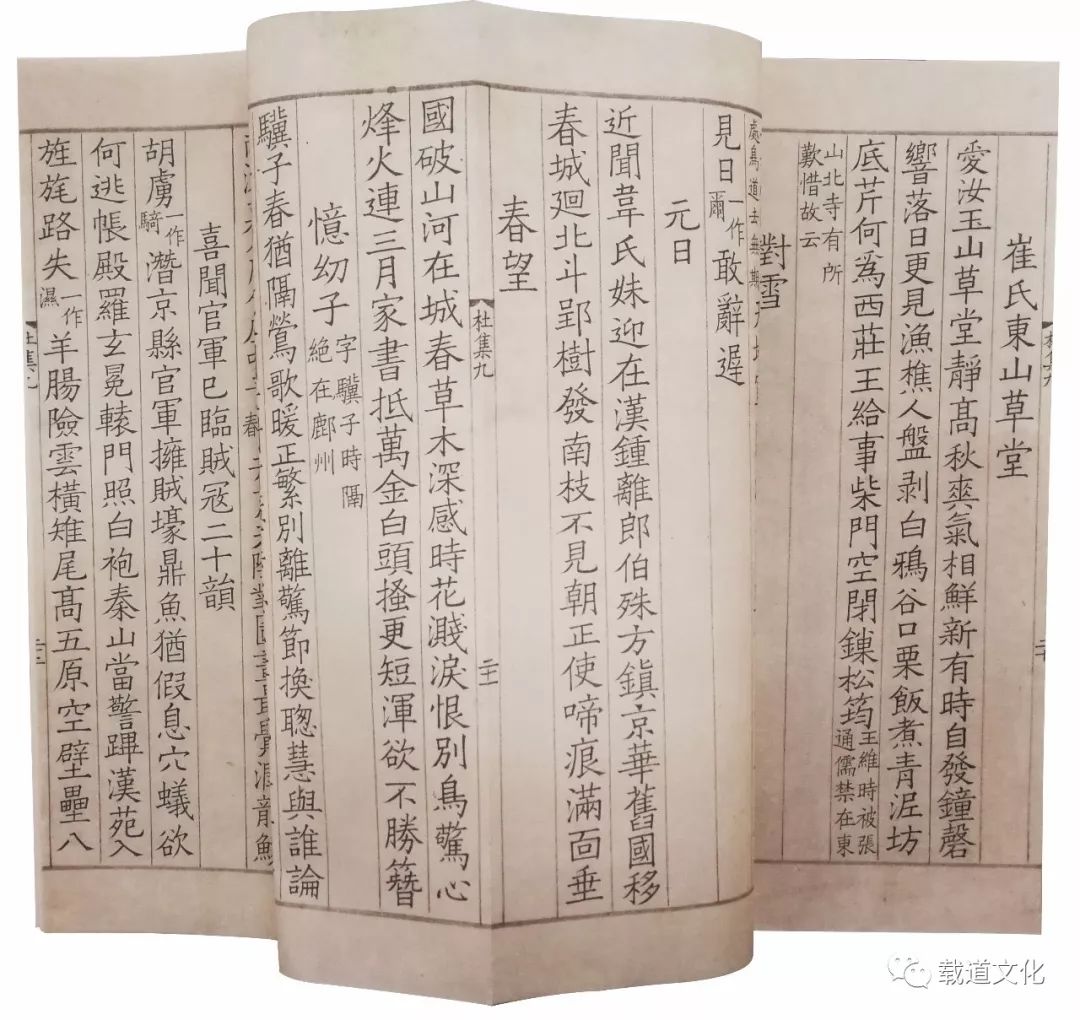 崔氏東山草堂
愛汝玉山草堂靜高秋爽氣相鮮新有時自發鐘磬
響落日更見漁樵人盤剥白鴉谷口栗飯煮青泥坊
底芹何爲西莊王給事柴門空閉鏁松筠王維時被張通儒禁在東
山北寺有所歎惜故云
對雪
見日一作爾敢辭遲
元日
近聞韋氏妹迎在漢鍾離郎伯殊方鎮京華舊國移
春城廻北斗郢樹發南枝不見朝正使啼痕滿面垂
春望
杜集九 二十一
國破山河在城春草木深感時花濺淚恨別鳥驚心
烽火連三月家書抵萬金白頭搔更短渾欲不勝簪
憶幼子字驥子時隔絶在鄜州
驥子春猶隔鶯歌暖正繁別離驚節換聰慧與誰論
喜聞官軍已臨賊寇二十韻
胡虜一作騎潛京縣官軍擁賊壕鼎魚猶假息穴蟻欲
何逃帳殿羅玄冕轅門照白袍秦山當警蹕漢苑入
旌旄路失一作濕羊腸險雲橫雉尾高五原空壁壘八
载道文化